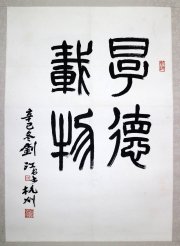 厚德
載物
辛巳冬劉江書於杭州